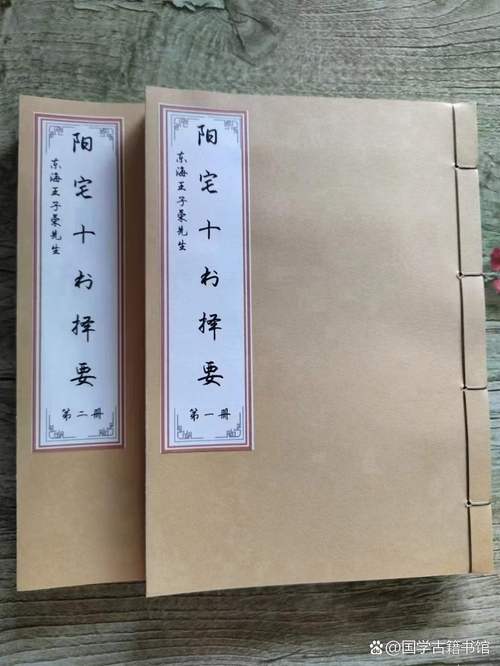 阳宅十书择要
东海王子荣先生
第二册
阳宅十书择要
东海王子荣先生
第一册
国学古籍书馆